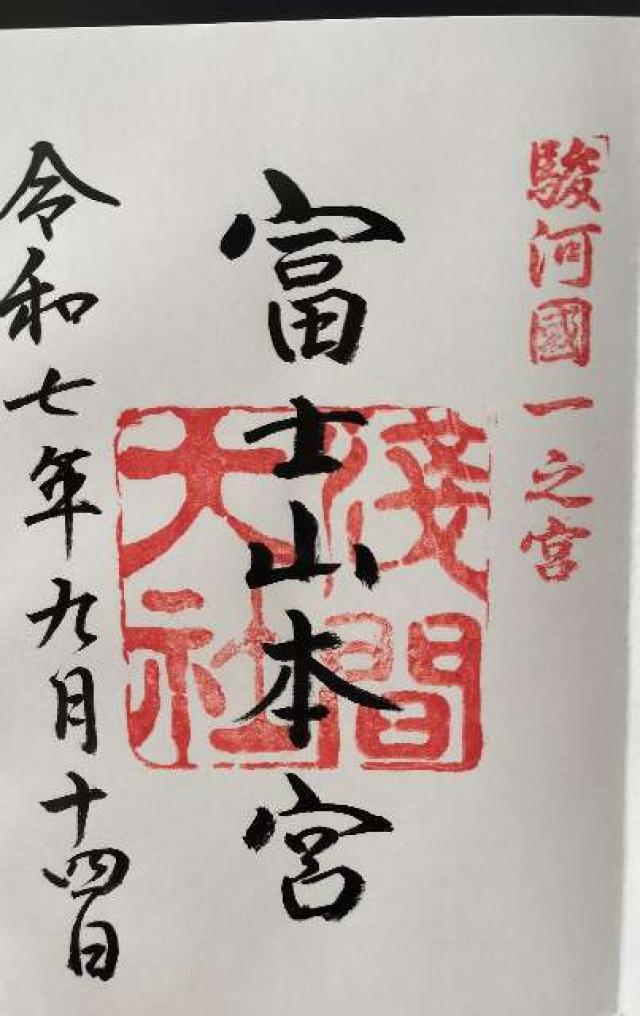 駿河國一之宮
富士山本宮
淺間大社
令和七年九月十四日